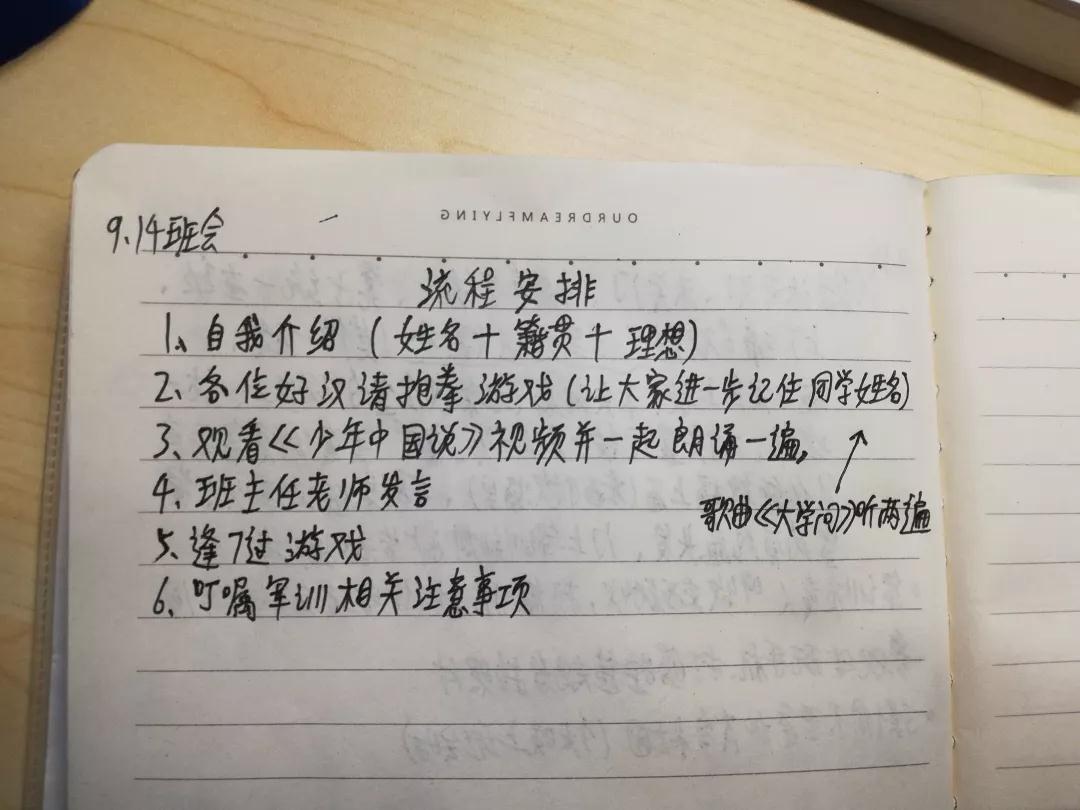 OURDREAMFLYING
9、14班会
流程安排
1、自我介绍（姓名+籍贯+理想）
2、各位好汉请抱拳游戏（让大家进一步记住同学姓名）
3、观看《少年中国说》视频并一起朗诵一遍。
4、班主任老师发言
歌曲《大学问》听两遍
5、逢7过游戏
6、叮嘱军训相关注意事项